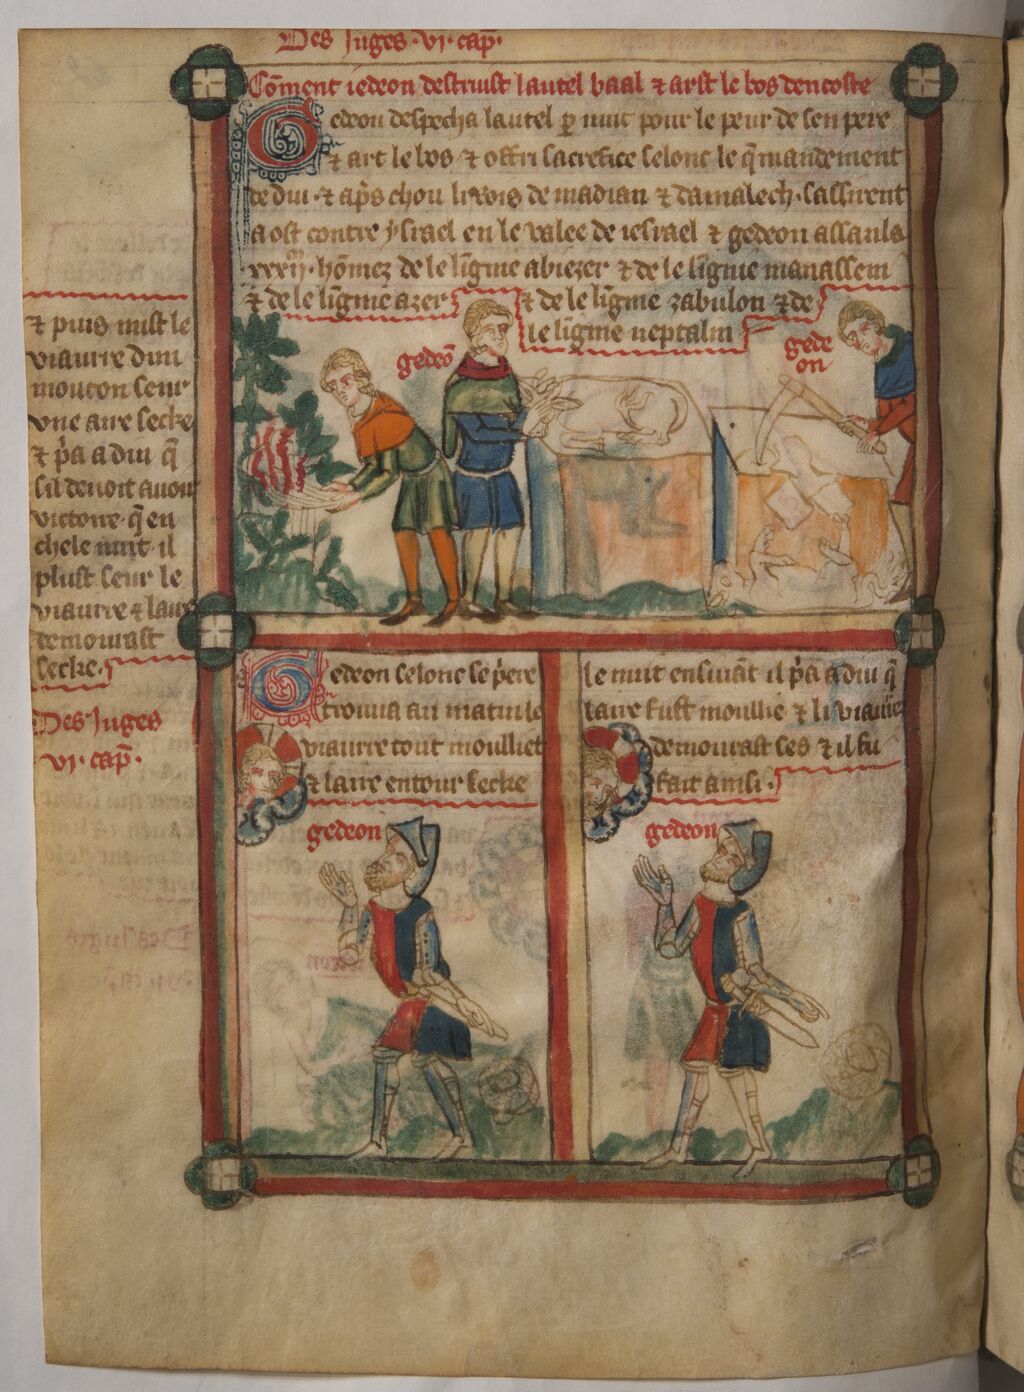 Des Juges · vi · cap̄ ·
Cõment iedeon destruist lautel baal & arst le bos dencoste
Gedeon despecha lautel p nuit pour le peur de sen pere
& art le bos & offri sacrefice selonc le q̃mandement
de diu · & ap̃s chou li rois de madian & damalech · sassirent
a ost contre ysrael en le valee de iesrael & gedeon assanla
hõmez de le lignie abiezer & de le lignie manassem
& de le lignie azer & de le lignie zabulon & de
le lignie neptalin
gedeõ
gede
on
& puis mist le
viaurre dun
mouton seur
vne aire seche
& p̃a a diu q̃
sil deuoit auoir
victoire · q̃ en
chele nuit · il
plust seur le
viaurre & laire
demourast
seche ·
Des Juges
vi · cap̄ ·
Gedeon selonc se p̃ere
trouua au matin le
viaurre tout moulliet
& laire entour seche
gedeon
le nuit ensiuãt il p̃a a diu q̃
laire fust moullie & li viaurre
demourast ses & il fu
fait ainsi ·
gedeon